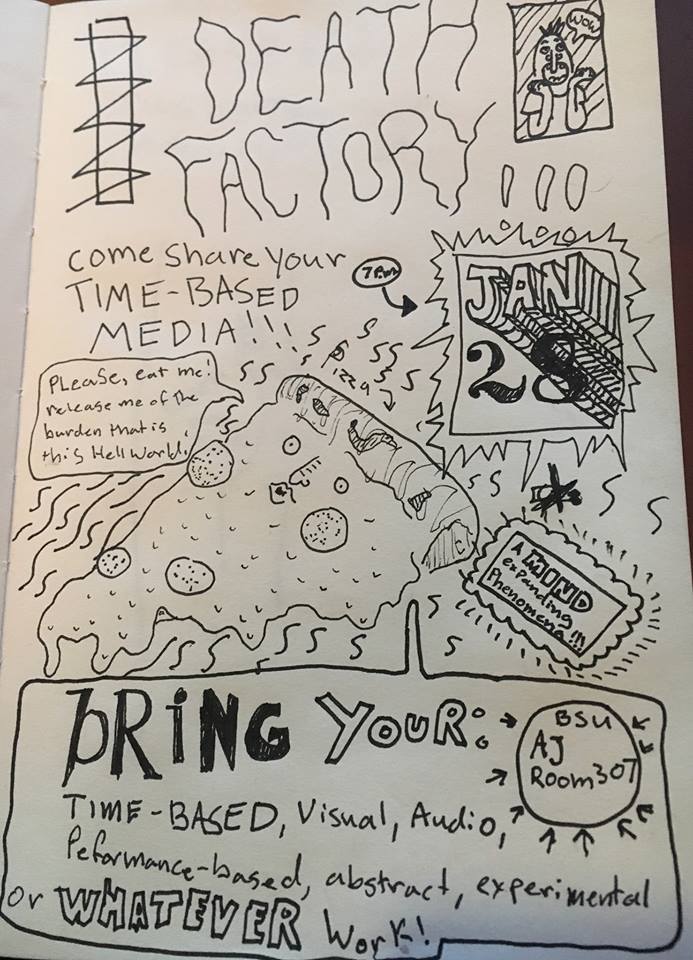 DEATH
FACTORY !!!
WOW
COME SHARE YOUR
TIME-BASED
MEDIA!!!
7P.m
JAN
28
Pizza
Please, eat me!
release me of the
burden that is
this Hell World.
A MIND
expanding
Phenomena!!!
BRiNG YOUR:
BSU
AJ
Room 307
TIME-BASED, Visual, Audio,
Peformance-based, abstract, experimental
or WHATEVER Work!